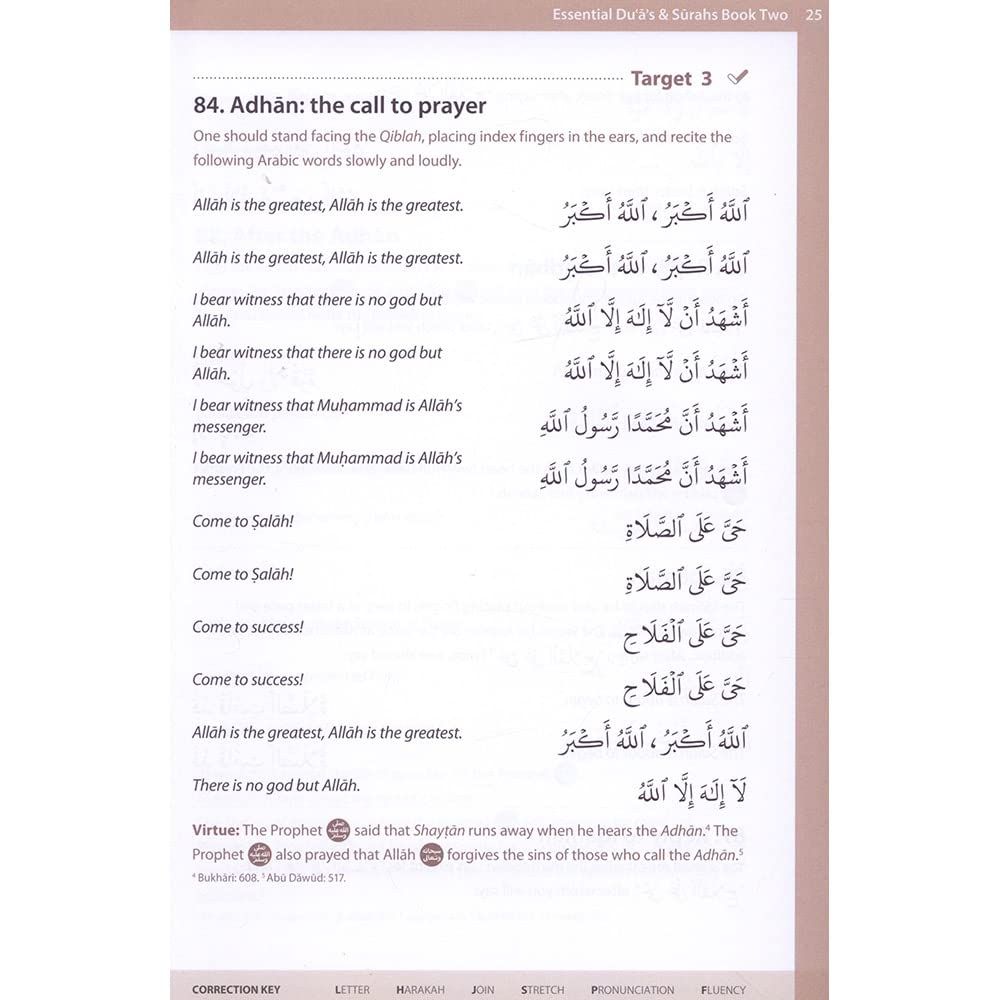 Essential Du‘ā’s & Sūrahs Book Two 25
Target 3
84. Adhān: the call to prayer
One should stand facing the Qiblah, placing index fingers in the ears, and recite the
following Arabic words slowly and loudly.
Allāh is the greatest, Allāh is the greatest. ٱللَّهُ أَكْبَرُ ، ٱللَّهُ أَكْبَرُ
Allāh is the greatest, Allāh is the greatest. ٱللَّهُ أَكْبَرُ ، ٱللَّهُ أَكْبَرُ
I bear witness that there is no god but
Allāh. أَشْهَدُ أَنْ لَّآ إِلَـٰهَ إِلَّا ٱللَّهُ
I bear witness that there is no god but
Allāh. أَشْهَدُ أَنْ لَّآ إِلَـٰهَ إِلَّا ٱللَّهُ
I bear witness that Muḥammad is Allāh’s
messenger. أَشْهَدُ أَنَّ مُحَمَّدًا رَّسُولُ ٱللَّهِ
I bear witness that Muḥammad is Allāh’s
messenger. أَشْهَدُ أَنَّ مُحَمَّدًا رَّسُولُ ٱللَّهِ
Come to Ṣalāh! حَيَّ عَلَى ٱلصَّلَاةِ
Come to Ṣalāh! حَيَّ عَلَى ٱلصَّلَاةِ
Come to success! حَيَّ عَلَى ٱلْفَلَاحِ
Come to success! حَيَّ عَلَى ٱلْفَلَاحِ
Allāh is the greatest, Allāh is the greatest. ٱللَّهُ أَكْبَرُ ، ٱللَّهُ أَكْبَرُ
There is no god but Allāh. لَآ إِلَـٰهَ إِلَّا ٱللَّهُ
Virtue: The Prophet ﷺ said that Shayṭān runs away when he hears the Adhān.⁴ The
Prophet ﷺ also prayed that Allāh سبحانه وتعالى forgives the sins of those who call the Adhān.⁵
⁴ Bukhārī: 608. ⁵ Abū Dāwūd: 517.
CORRECTION KEY LETTER HARAKAH JOIN STRETCH PRONUNCIATION FLUENCY